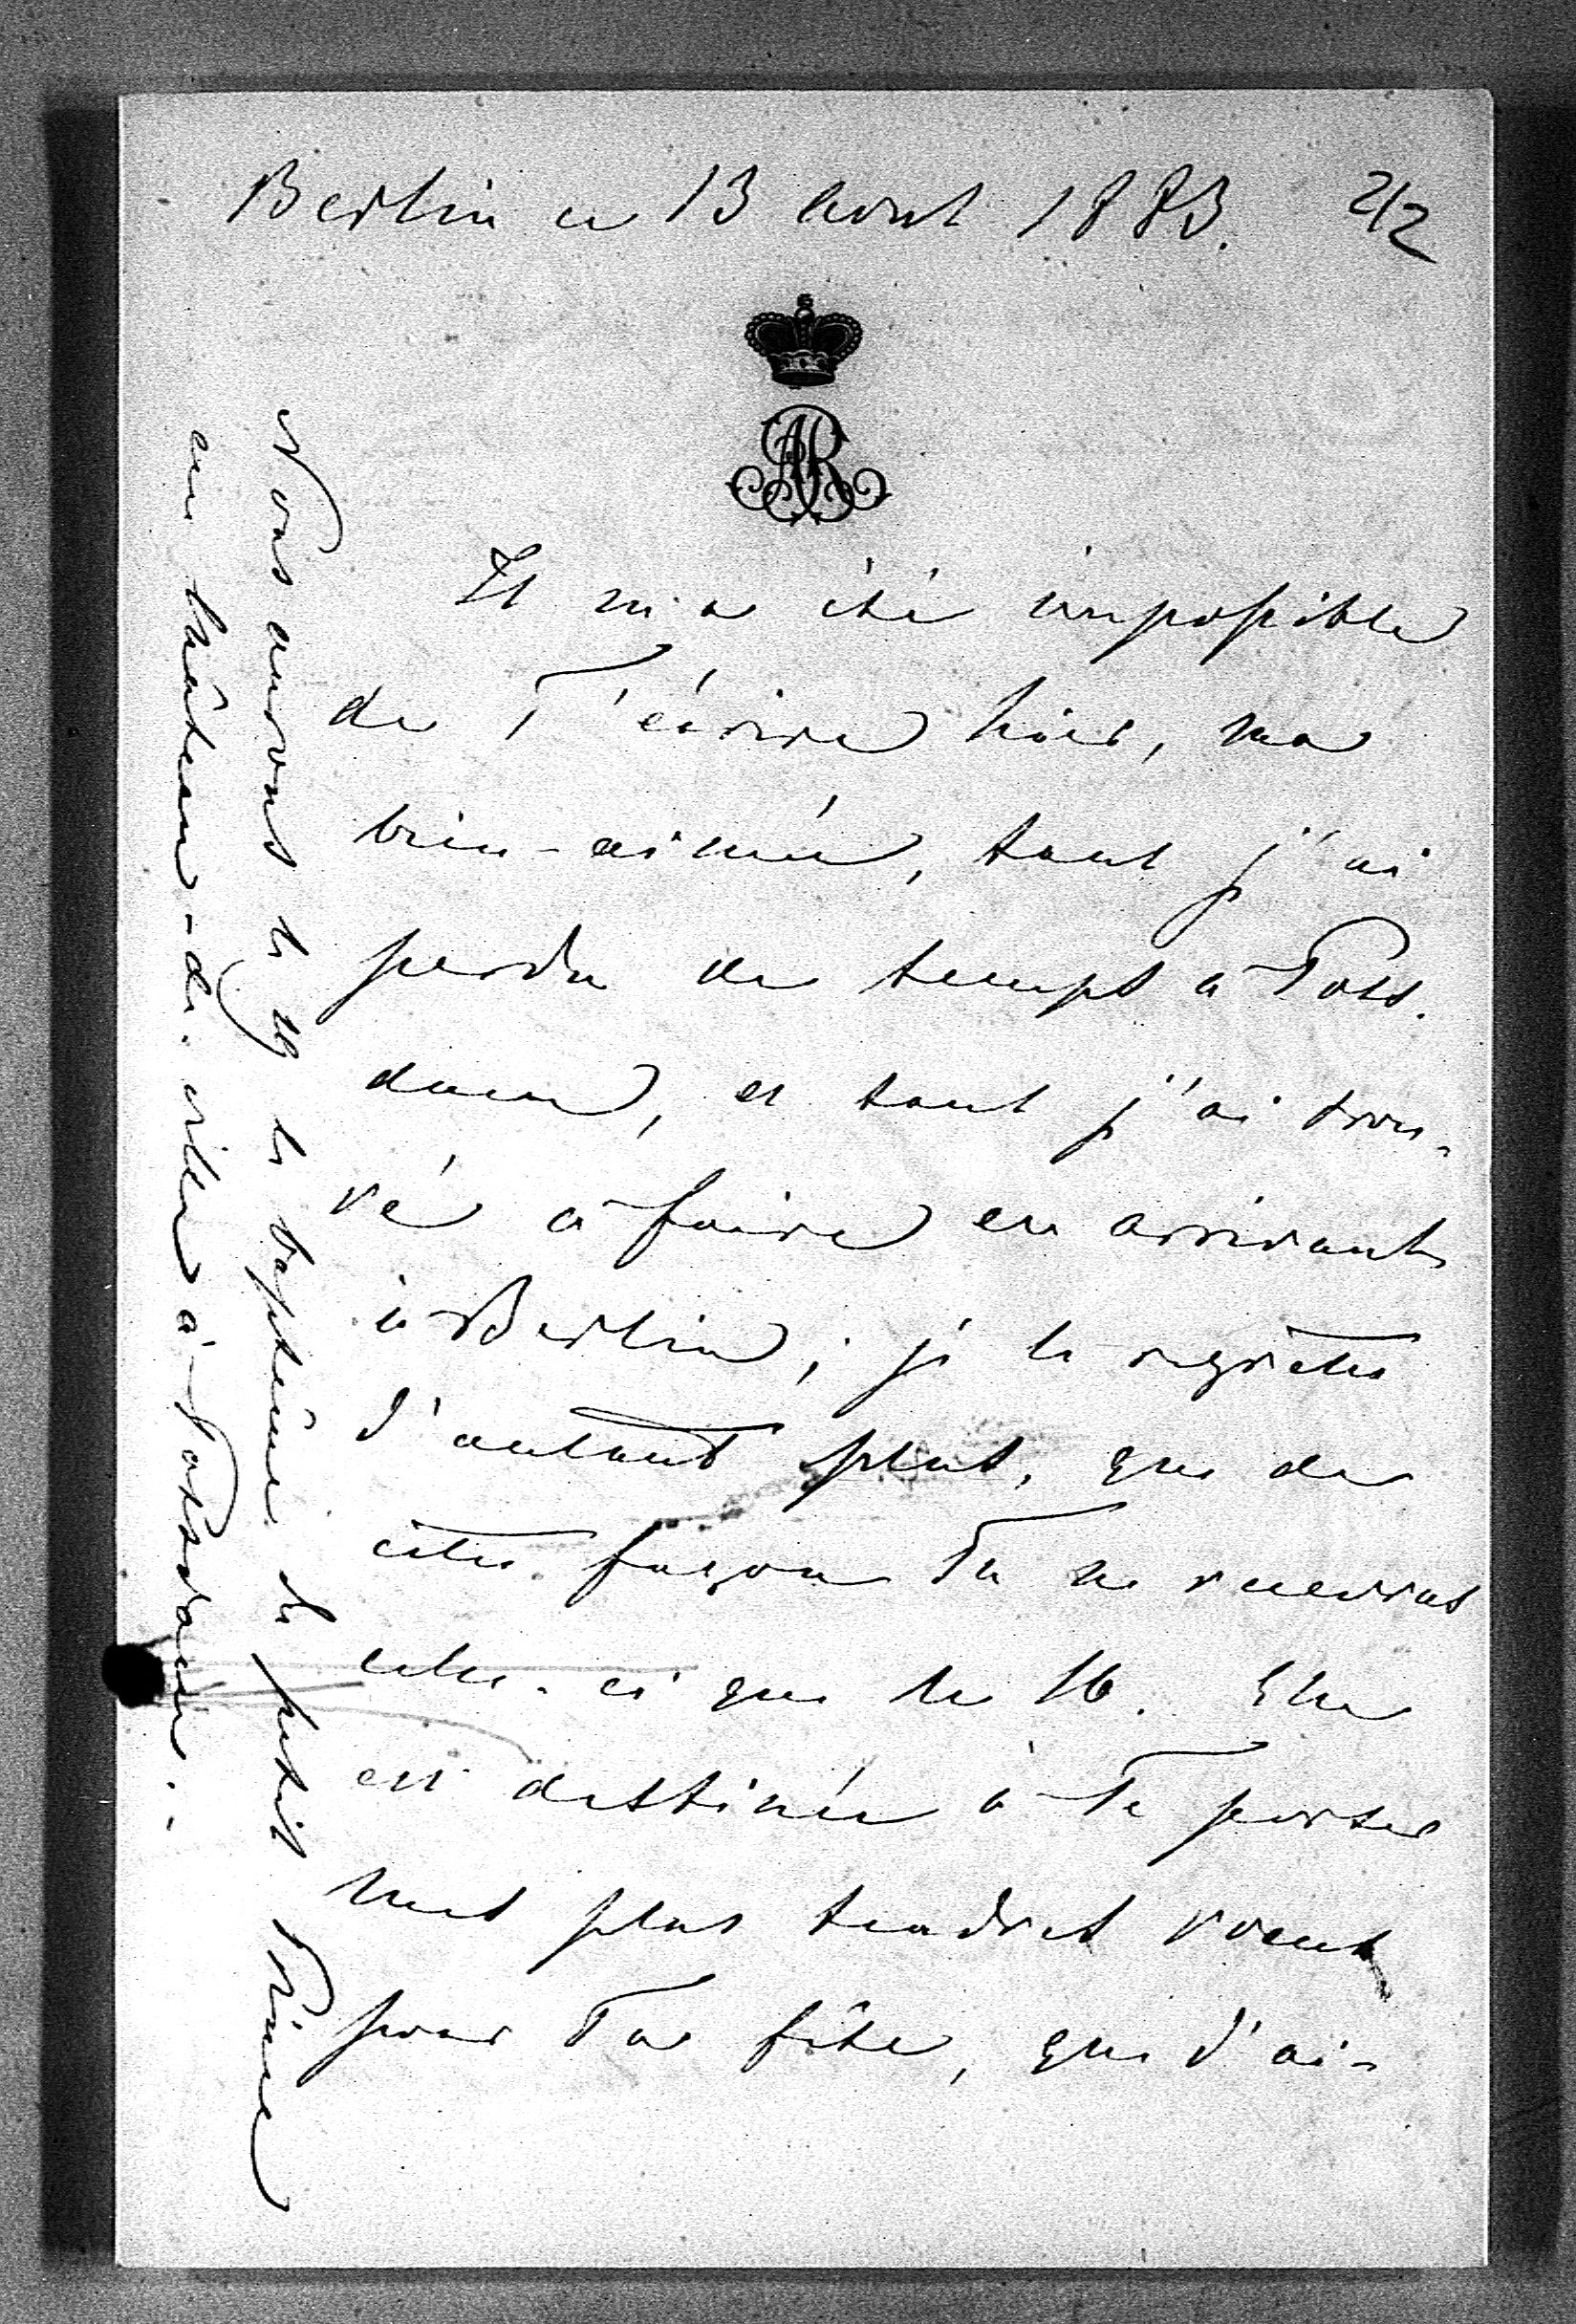 Berlin ce 13 Aout 1883. 2/2
AR
Il m'a été impossible
de T'écrire hier, ma
bien-aimée, tant j'ai
perdu de temps à Pots-
dam, et tant j'ai trou-
vé à faire en arrivant
à Berlin; je le regrette
d'autant plus, que de
cette façon Tu ne recevras
celle-ci que le 16. Elle
est destinée à Te porter
mes plus tendres voeux
pour Ta fête, que j'ai-
Nous aurons le 29 le baptême du petit Prince
au château-de-ville à Potsdam.